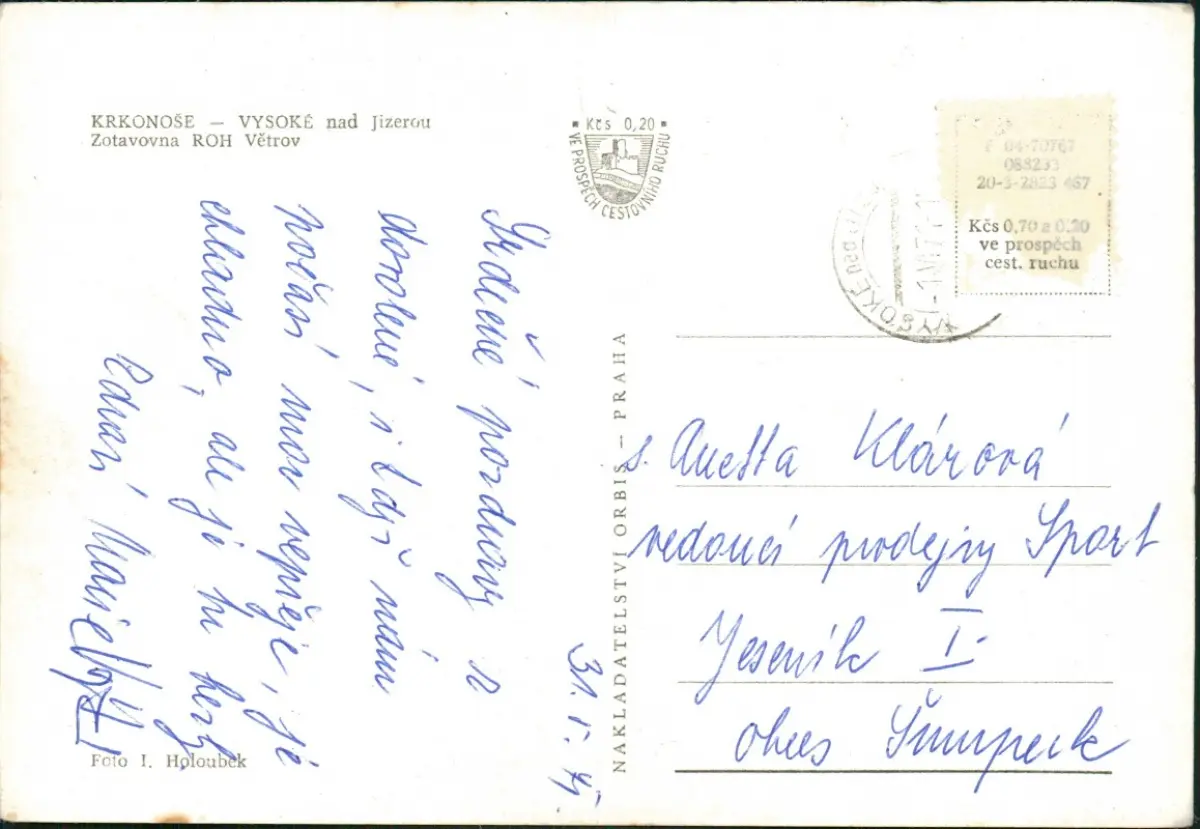 KRKONOŠE — VYSOKÉ nad Jizerou
Zotavovna ROH Větrov
Kčs 0,20
VE PROSPĚCH CESTOVNÍHO RUCHU
VYSOKÉ nad
20-3-2823 467
Kčs 0,70 a 0,20
ve prospěch
cest. ruchu
Srdečné pozdravy z
dovolené, i když nám
počasí moc nepřeje, je
chladno, ale je tu hezky
Zdraví Marie
31. 5. 71
NAKLADATELSTVÍ ORBIS — PRAHA
s. Anetta Klárová
vedoucí prodejny Sport
Jeseník I.
okres Šumperk
Foto I. Holoubek